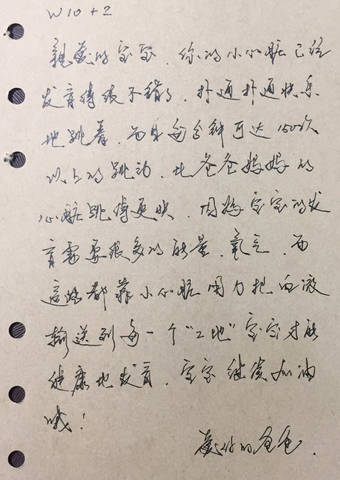 W10+2
亲爱的宝宝，你的小心脏已经
发育得很不错了，扑通扑通快乐
地跳着，而且每分钟可达150次
以上的跳动，比爸爸妈妈的
心脏跳得更快，因为宝宝的发
育需要很多的能量、氧气，而
这些都靠小心脏用力把血液
输送到每一个“工地”宝宝才能
健康地发育，宝宝继续加油
哦！
爱你的爸爸.